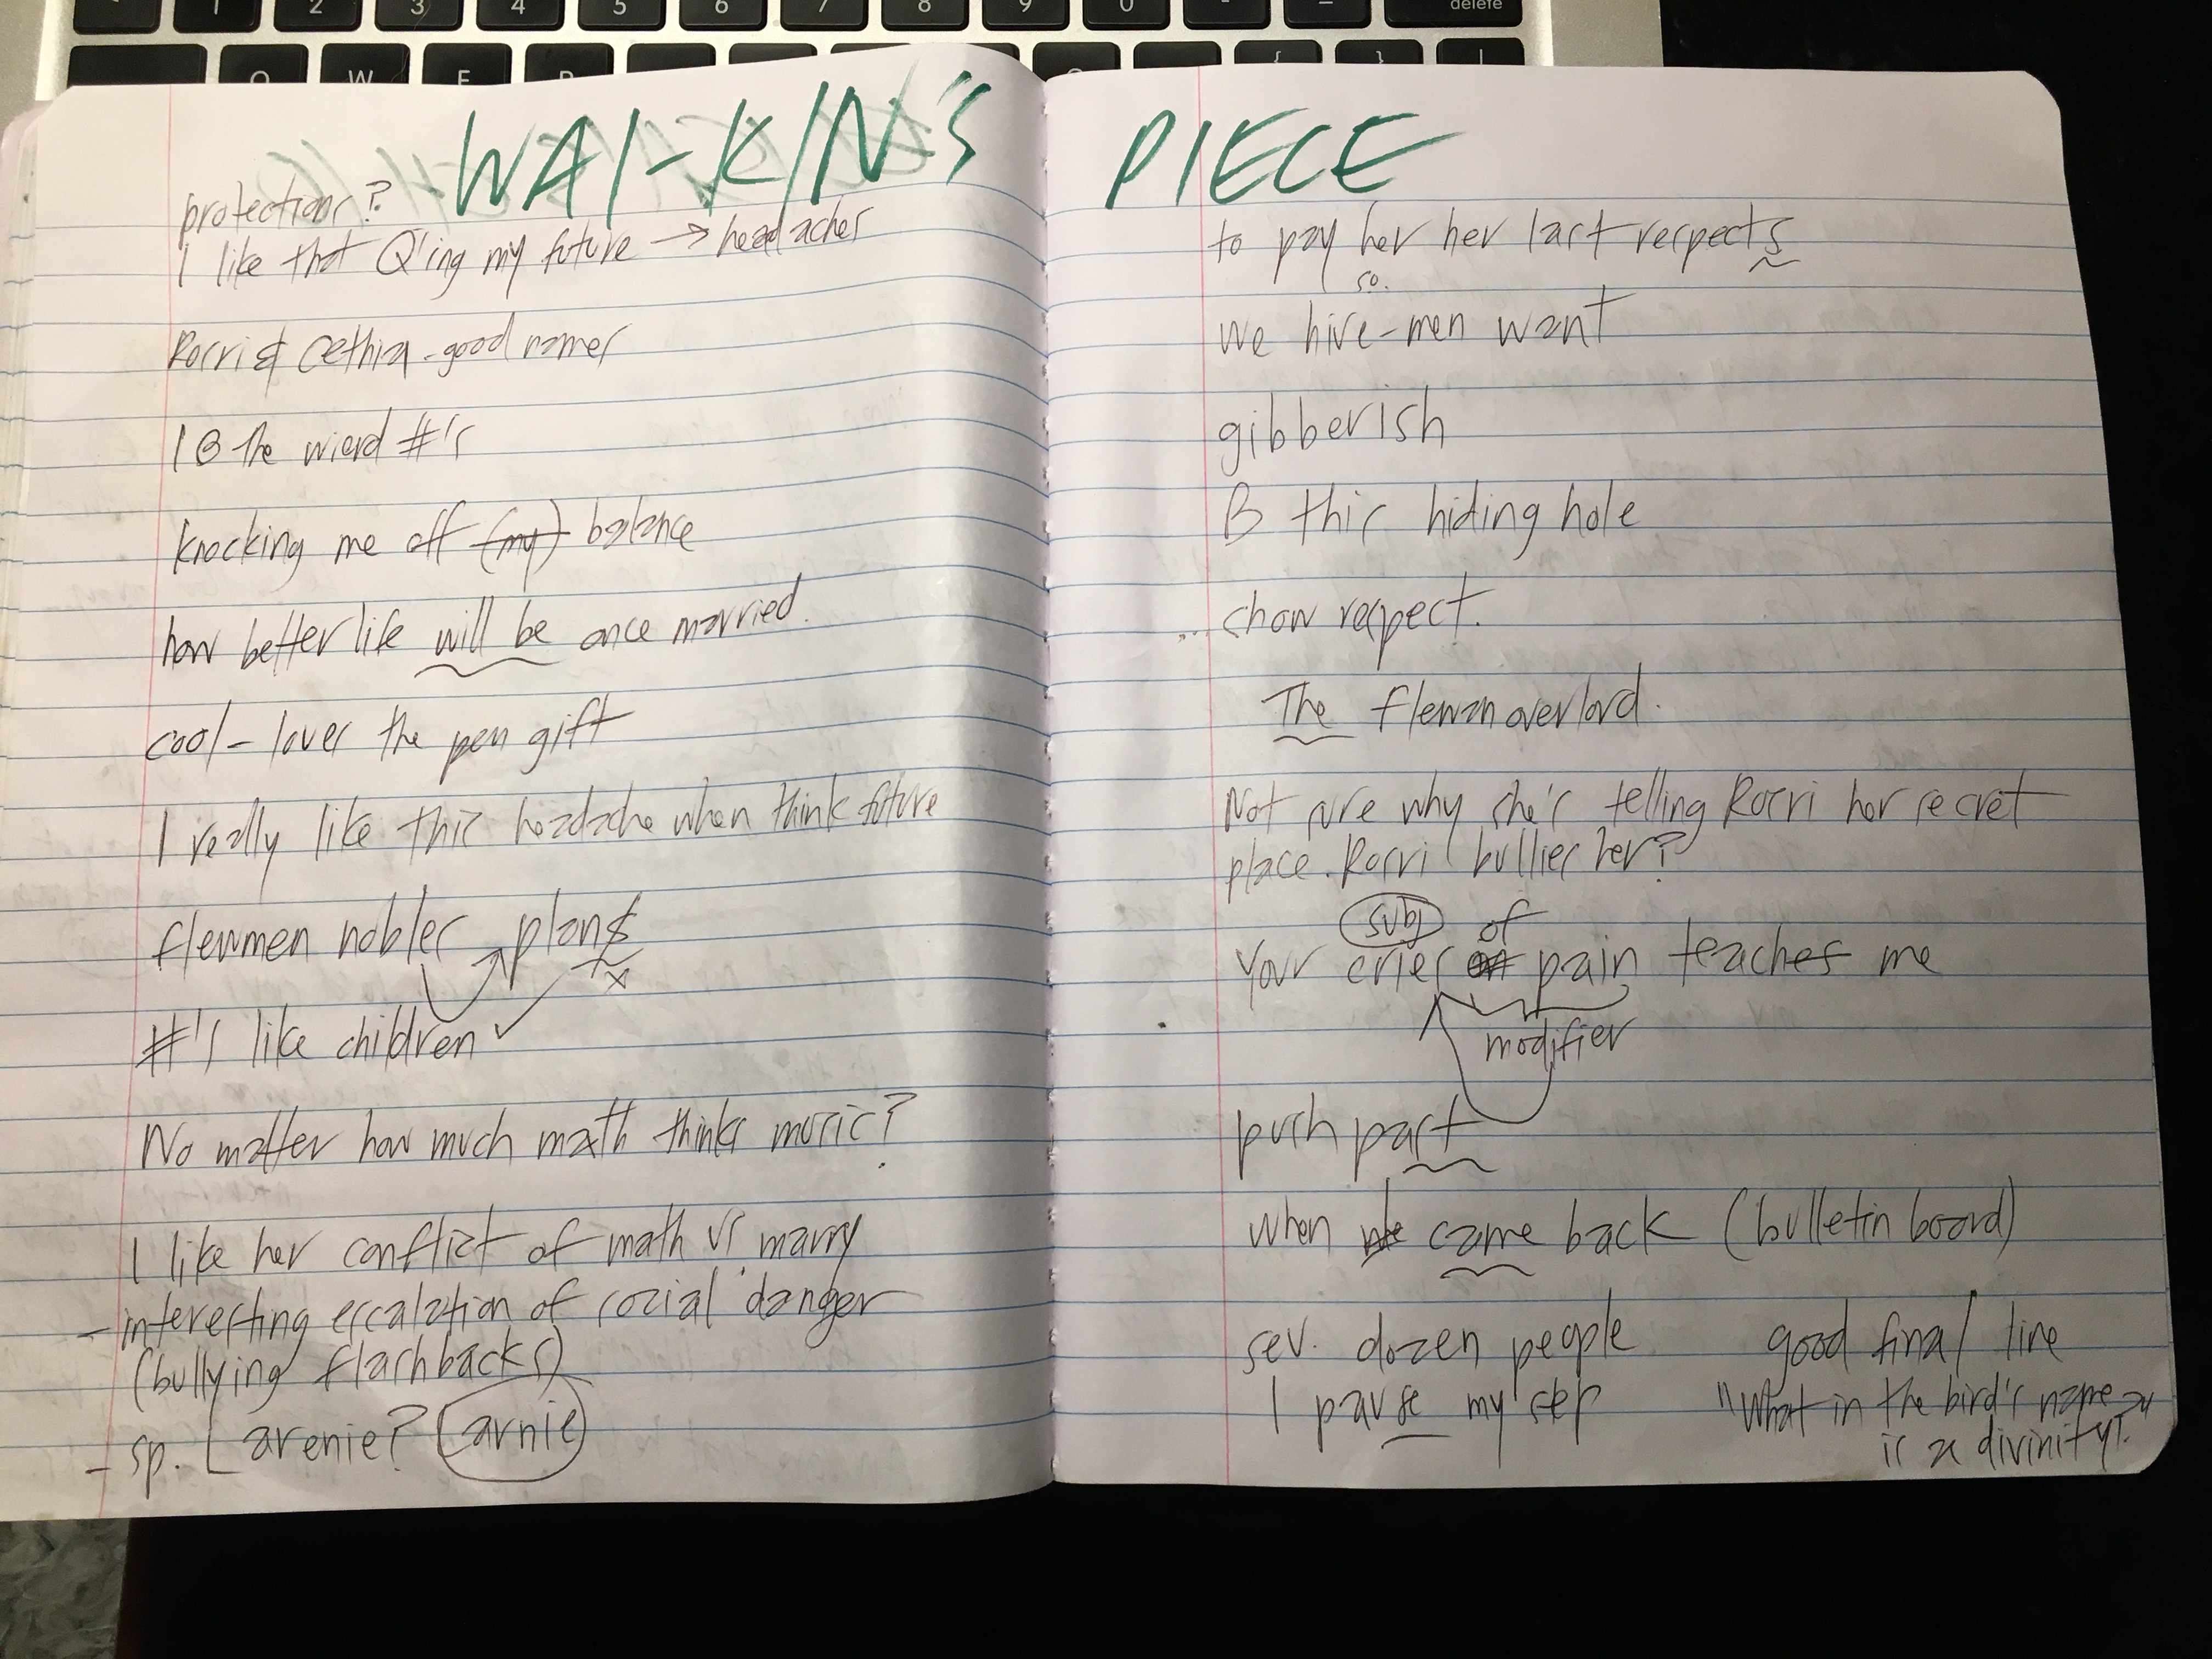 WAI-KIN'S PIECE
protections?
I like that Q'ing my future → headaches
Rorri & Cethia - good names
the wierd #'s
knocking me off (my) balance
how better life will be once married.
cool - loves the pen gift
I really like this headache when think future
flewmen nobles plans
#'s like children
No matter how much math thinks music?
I like her conflict of math vs. marry
- interesting escalation of social danger
(bullying flashbacks)
- sp. arenie? arnie
to pay her her last respects
so.
we hive-men want
gibberish
B this hiding hole
... show respect.
The flewman overlord.
Not sure why she's telling Rorri her secret
place. Rorri bullies her?
subj of
Your cries pain teaches me
modifier
push past
when came back (bulletin board)
sev. dozen people
I pause my step
good final line
"What in the bird's name
is a divinity?"
delete
1 2 3 4 5 6 7 8 9 0 - =
Q W E R